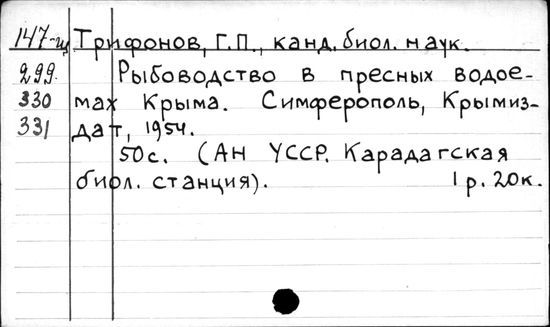 147-щ Трифонов, Г.П., канд. биол. наук.
299. Рыбоводство в пресных водое-
330 мах Крыма. Симферополь, Крымиз-
331 дат, 1954.
50с. (АН УССР. Карадагская
биол. станция). 1 р. 20к.